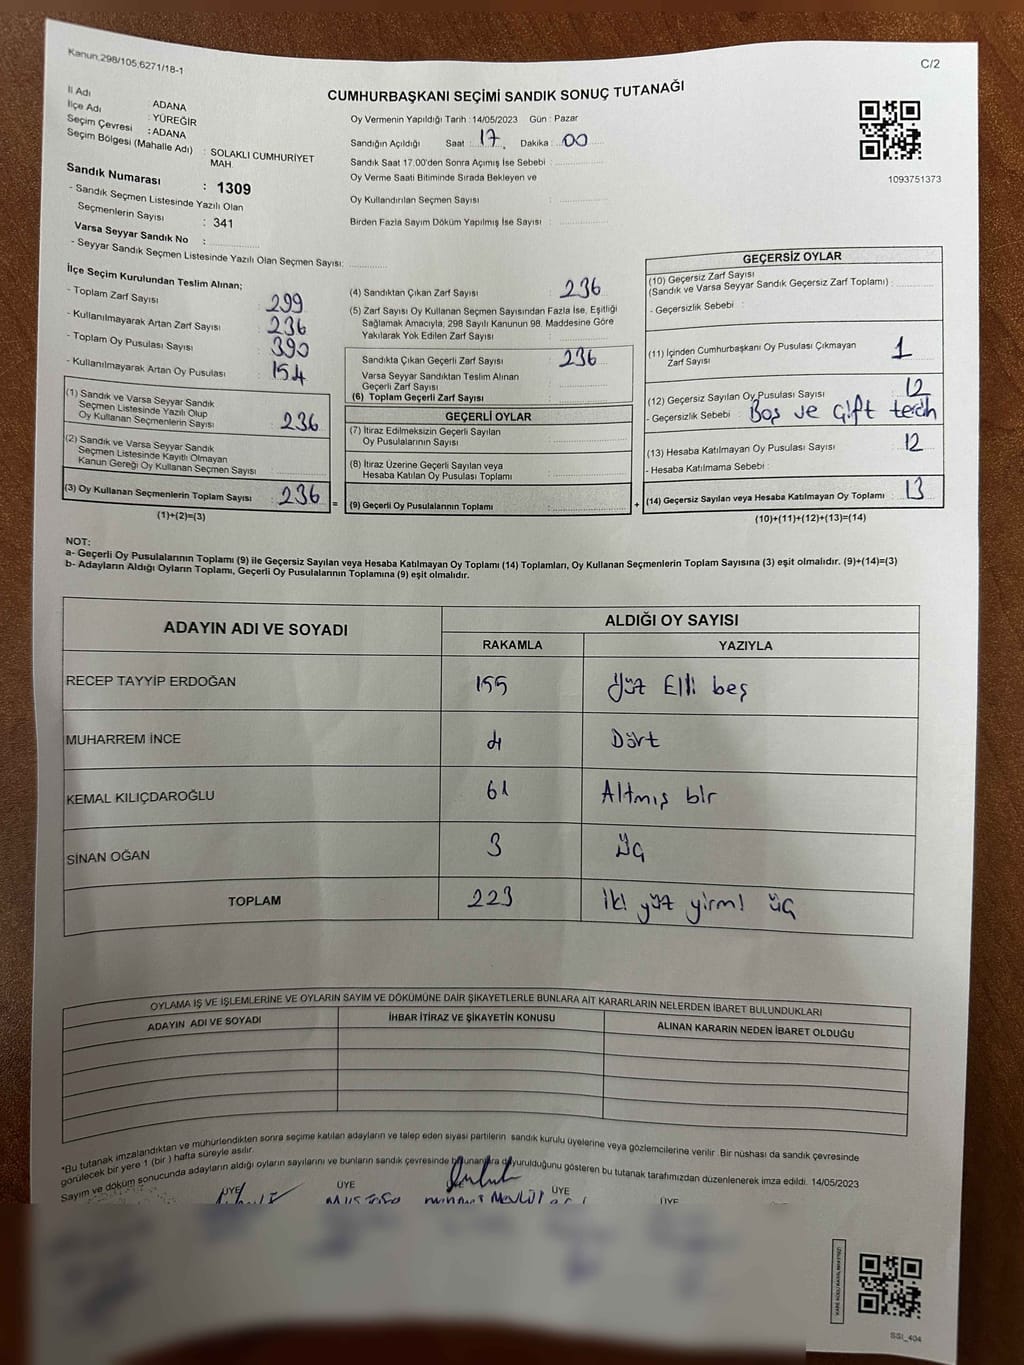 Kanun.298/105,6271/18-1
C/2
CUMHURBAŞKANI SEÇİMİ SANDIK SONUÇ TUTANAĞI
İl Adı : ADANA
İlçe Adı : YÜREĞİR
Seçim Çevresi : ADANA
Seçim Bölgesi (Mahalle Adı) : SOLAKLI CUMHURİYET
MAH.
Sandık Numarası : 1309
- Sandık Seçmen Listesinde Yazılı Olan
Seçmenlerin Sayısı : 341
Varsa Seyyar Sandık No :
- Seyyar Sandık Seçmen Listesinde Yazılı Olan Seçmen Sayısı:
Oy Vermenin Yapıldığı Tarih : 14/05/2023 Gün : Pazar
Sandığın Açıldığı Saat : 17. Dakika : 00
Sandık Saat 17.00'den Sonra Açımış İse Sebebi :
Oy Verme Saati Bitiminde Sırada Bekleyen ve
Oy Kullandırılan Seçmen Sayısı :
Birden Fazla Sayım Döküm Yapılmış İse Sayısı :
1093751373
İlçe Seçim Kurulundan Teslim Alınan;
- Toplam Zarf Sayısı : 299
- Kullanılmayarak Artan Zarf Sayısı : 236
- Toplam Oy Pusulası Sayısı : 390
- Kullanılmayarak Artan Oy Pusulası : 154
(1) Sandık ve Varsa Seyyar Sandık
Seçmen Listesinde Yazılı Olup
Oy Kullanan Seçmenlerin Sayısı : 236
(2) Sandık ve Varsa Seyyar Sandık
Seçmen Listesinde Kayıtlı Olmayan
Kanun Gereği Oy Kullanan Seçmen Sayısı :
(3) Oy Kullanan Seçmenlerin Toplam Sayısı : 236 =
(1)+(2)=(3)
(4) Sandıktan Çıkan Zarf Sayısı : 236
(5) Zarf Sayısı Oy Kullanan Seçmen Sayısından Fazla İse, Eşitliği
Sağlamak Amacıyla, 298 Sayılı Kanunun 98. Maddesine Göre
Yakılarak Yok Edilen Zarf Sayısı :
Sandıkta Çıkan Geçerli Zarf Sayısı : 236
Varsa Seyyar Sandıktan Teslim Alınan
Geçerli Zarf Sayısı :
(6) Toplam Geçerli Zarf Sayısı :
GEÇERLİ OYLAR
(7) İtiraz Edilmeksizin Geçerli Sayılan
Oy Pusulalarının Sayısı :
(8) İtiraz Üzerine Geçerli Sayılan veya
Hesaba Katılan Oy Pusulası Toplamı :
(9) Geçerli Oy Pusulalarının Toplamı : +
GEÇERSİZ OYLAR
(10) Geçersiz Zarf Sayısı
(Sandık ve Varsa Seyyar Sandık Geçersiz Zarf Toplamı) :
- Geçersizlik Sebebi :
(11) İçinden Cumhurbaşkanı Oy Pusulası Çıkmayan
Zarf Sayısı : 1
(12) Geçersiz Sayılan Oy Pusulası Sayısı : 12
- Geçersizlik Sebebi : Boş ve Çift tercih
(13) Hesaba Katılmayan Oy Pusulası Sayısı : 12
- Hesaba Katılmama Sebebi :
(14) Geçersiz Sayılan veya Hesaba Katılmayan Oy Toplamı : 13
(10)+(11)+(12)+(13)=(14)
NOT:
a- Geçerli Oy Pusulalarının Toplamı (9) ile Geçersiz Sayılan veya Hesaba Katılmayan Oy Toplamı (14) Toplamları, Oy Kullanan Seçmenlerin Toplam Sayısına (3) eşit olmalıdır. (9)+(14)=(3)
b- Adayların Aldığı Oyların Toplamı, Geçerli Oy Pusulalarının Toplamına (9) eşit olmalıdır.
ADAYIN ADI VE SOYADI
ALDIĞI OY SAYISI
RAKAMLA YAZIYLA
RECEP TAYYİP ERDOĞAN 155 Yüz Elli beş
MUHARREM İNCE 4 Dört
KEMAL KILIÇDAROĞLU 61 Altmış bir
SİNAN OĞAN 3 üç
TOPLAM 223 İki yüz yirmi üç
OYLAMA İŞ VE İŞLEMLERİNE VE OYLARIN SAYIM VE DÖKÜMÜNE DAİR ŞİKAYETLERLE BUNLARA AİT KARARLARIN NELERDEN İBARET BULUNDUKLARI
ADAYIN ADI VE SOYADI İHBAR İTİRAZ VE ŞİKAYETİN KONUSU ALINAN KARARIN NEDEN İBARET OLDUĞU
*Bu tutanak imzalandıktan ve mühürlendikten sonra seçime katılan adayların ve talep eden siyasi partilerin sandık kurulu üyelerine veya gözlemcilerine verilir. Bir nüshası da sandık çevresinde
görülecek bir yere 1 (bir) hafta süreyle asılır.
Sayım ve döküm sonucunda adayların aldığı oyların sayılarını ve bunların sandık çevresinde duyurulduğunu gösteren bu tutanak tarafımızdan düzenlenerek imza edildi. 14/05/2023
ÜYE ÜYE ÜYE ÜYE
SSI_404